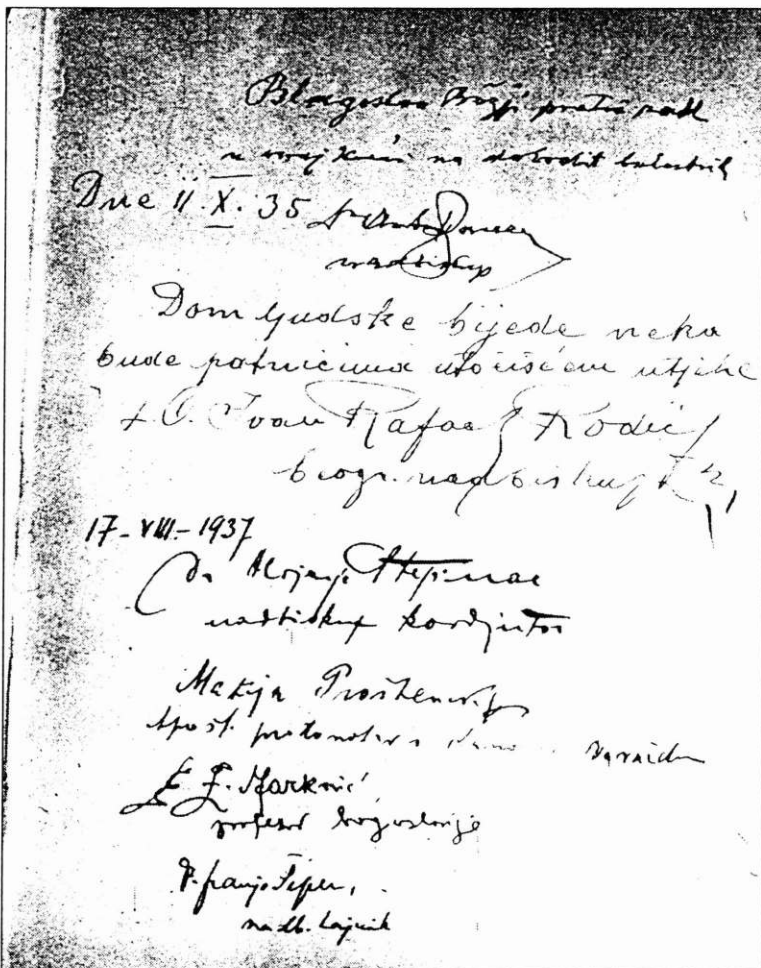 Blagoslov Božji pratio rad
u ovoj kući na dobrobit bolesnih
Dne 11. X. 35 Dr Ante Bauer
nadbiskup
Dom ljudske bijede neka
bude patnicima utočištem utjehe
+ O. Ivan Rafael Rodić
beogr. nadbiskup
17-VIII-1937
Dr Alojzije Stepinac
nadbiskup koadjutor
Matija
Apost. protonotar
Marković
profesor bogoslovije
Franjo Šeper,
nadb. tajnik